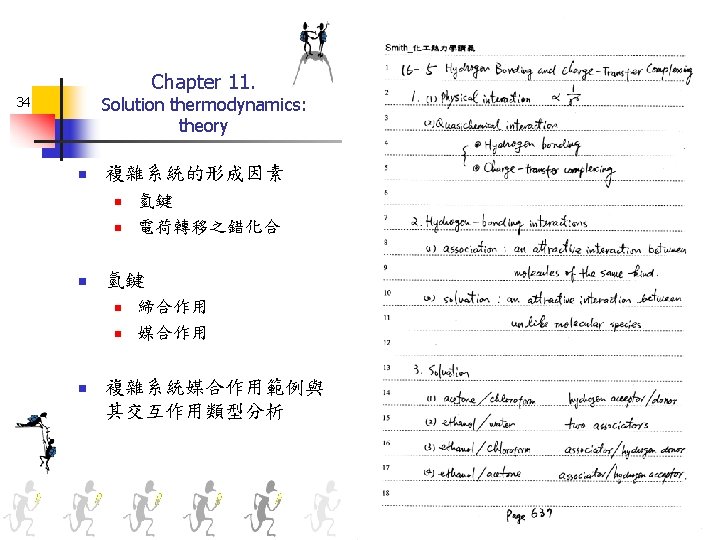 Chapter 11.
34
Solution thermodynamics:
theory
複雜系統的形成因素
氫鍵
電荷轉移之錯化合
氫鍵
締合作用
媒合作用
複雜系統媒合作用範例與
其交互作用類型分析
Smith_化工熱力學講義
1 16-5 Hydrogen Bonding and Charge-Transfer Complexing
2 1. (1) Physical interaction ∝
3 (2) Quasichemical interaction
4 Hydrogen bonding
5 Charge-transfer complexing
6
7 2. Hydrogen-bonding interactions
8 (1) association : an attractive interaction between
9 molecules of the same kind.
10 (2) solvation : an attractive interaction between
11 unlike molecular species
12
13 3. Solvation
14 (1) acetone/chloroform hydrogen acceptor/donor
15 (2) ethanol/water two associators
16 (3) ethanol/chloroform associator/hydrogen donor
17 (4) ethanol/acetone associator/hydrogen acceptor.
18
Page 639